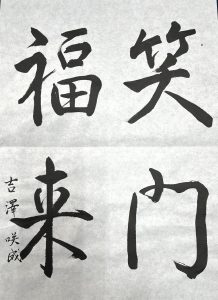 笑門
来福
吉澤咲成